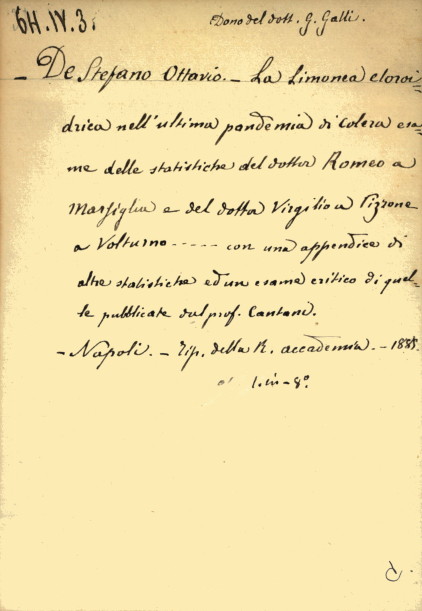 6H.IV.3.
Dono del dott. G. Galli.
- De Stefano Ottavio. - La Limonea cloroi=
drica nell'ultima pandemia di Colera esa=
me delle statistiche del dottor Romeo a
Marsiglia e del dottor Virgilio a Pizzone
a Volturno ----- con una appendice di
altre statistiche ed un esame critico di quel=
le pubblicate dal prof. Cantani.
- Napoli. - Tip. della R. accademia. - 1885.
1. in-8º